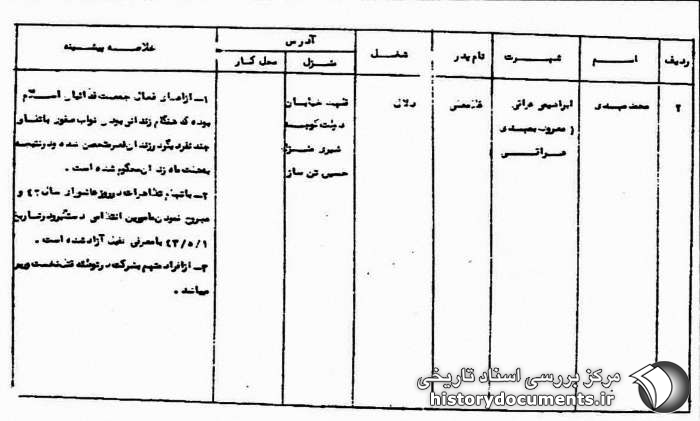 ردیف
اسم
شهرت
نام پدر
شغل
آدرس
منزل
محل کار
خلاصه پیشینه
۲
محمدمهدی
ابراهیمی عراقی
(معروف بمهدی
عراقی
دلال
خیابان
دولت کوچه
منزل
حسین تن ساز
۱ـ از اعضای فعال جمعیت فدائیان اسلام
بوده که هنگام زندانی بودن نواب صفوی باتفاق
چند نفر دیگر در زندان قصر متحصن شده و در نتیجه
بهفت ماه زندان محکوم شده است .
۲ـ باتهام تظاهرات در روز عاشورا سال ۴۲ و
مجروح نمودن مامورین انتظامی دستگیر و در تاریخ
۴۳/۵/۱ با معرفی آزاد شده است .
۳ـ از افراد متهم بشرکت در توطئه قتل نخست وزیر
میباشد .
مرکز بررسی اسناد تاریخی
historydocuments.ir